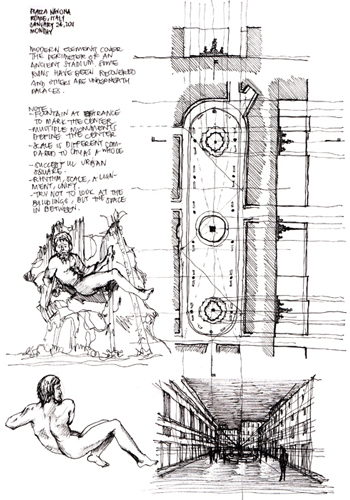 PIAZZA NAVONA
ROME, ITALY
JANUARY 24, 2011
MONDAY
MODERN ELEMENTS COVER
THE PERIMETER OF AN
ANCIENT STADIUM. SOME
RUINS HAVE BEEN
AND OTHERS ARE UNDERNEATH
PALACES.
NOTE
-FOUNTAIN AT ENTRANCE
TO MARK THE CENTER.
-MULTIPLE MONUMENTS
DEFINE THE CENTER
-SCALE IS DIFFERENT COM-
PARED TO AS A WHOLE
-SUCCESSFUL URBAN
SQUARE.
-RHYTHM, SCALE, ALIGN-
MENT, UNITY.
-TRY NOT TO LOOK AT THE
BUILDINGS, BUT THE SPACE
IN BETWEEN.